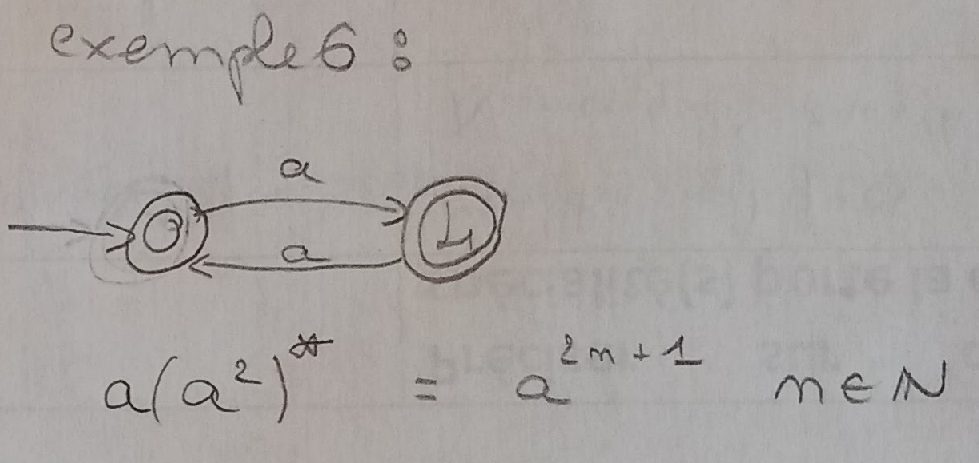 exemple 6 :
a
0 1
a
a(a²)* = a²ᵐ⁺¹ m ∈ N